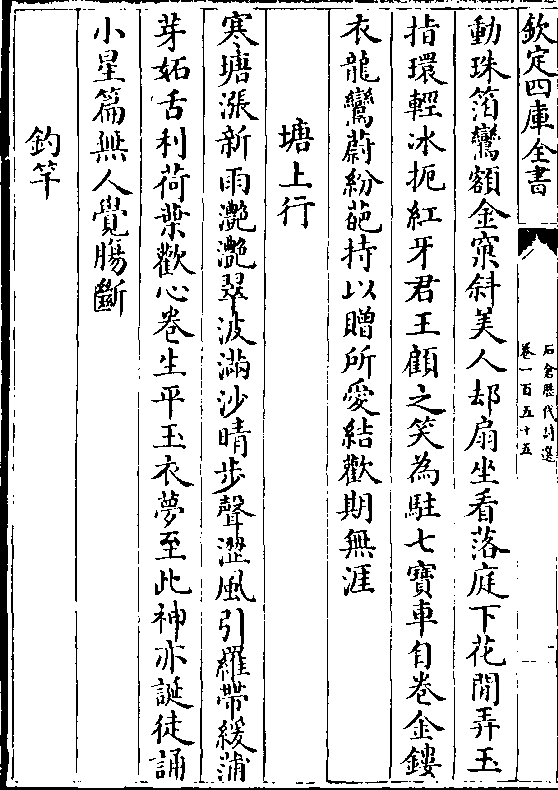 欽定四庫全書
石倉歷代詩選
卷一百五十五
動珠箔鸞額金窠斜美人却扇坐看落庭下花閒弄玉
指環輕冰扼紅牙君王顧之笑為駐七寳車自卷金鏤
衣龍鸞蔚紛葩持以贈所愛結歡期無涯
塘上行
寒塘漲新雨灧灧翠波滿沙晴步聲澀風引羅帶緩蒲
芽妬舌利荷葉歡心卷生平玉衣夢至此神亦誕徒誦
小星篇無人覺腸斷
釣竿